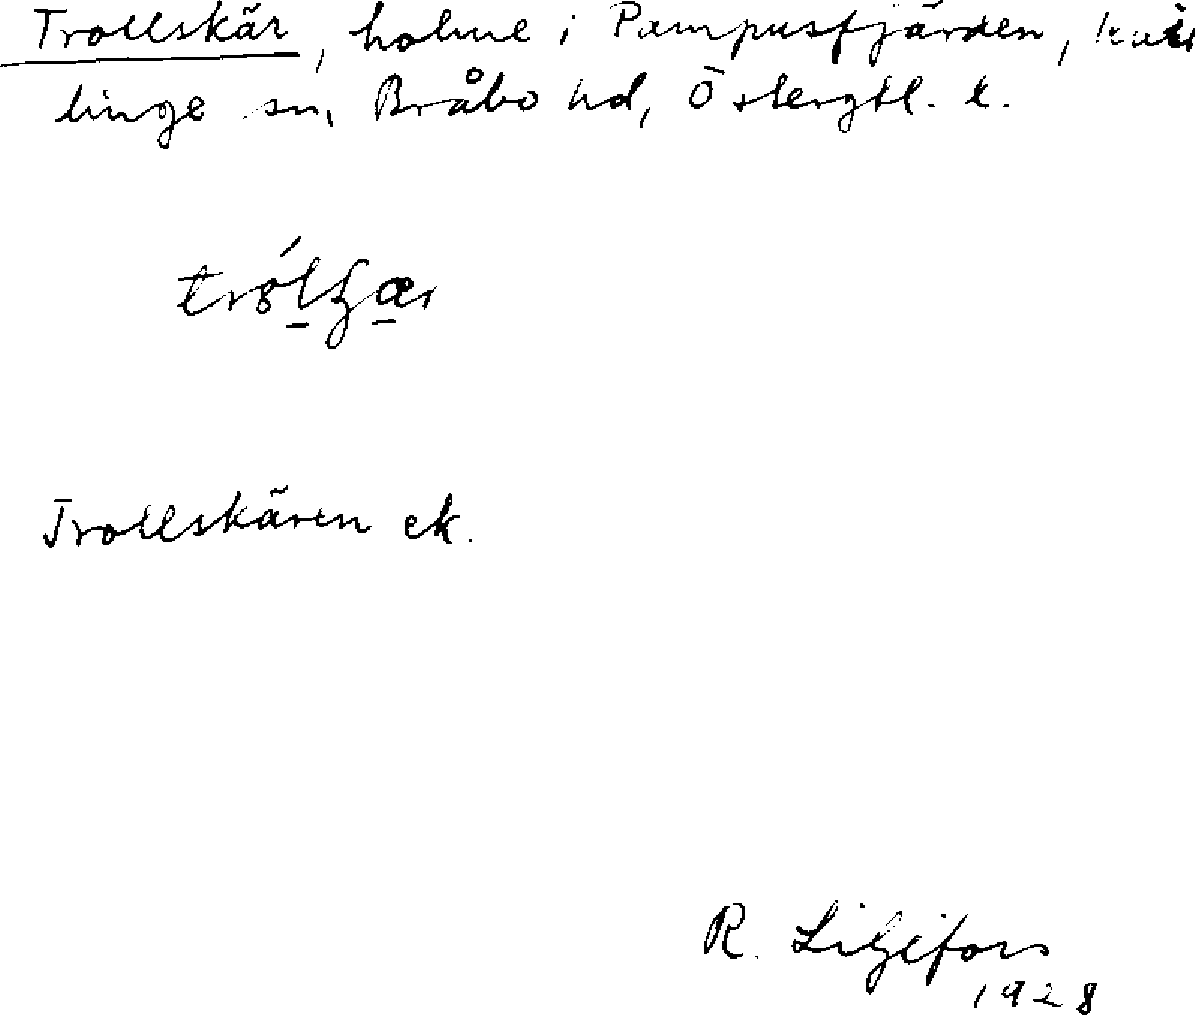 Trollskär, holme i Pampusfjärden, Kvil
linge sn, Bråbo hd, Östergtl. l.
Trollskären ek.
R. Liljefors
1928